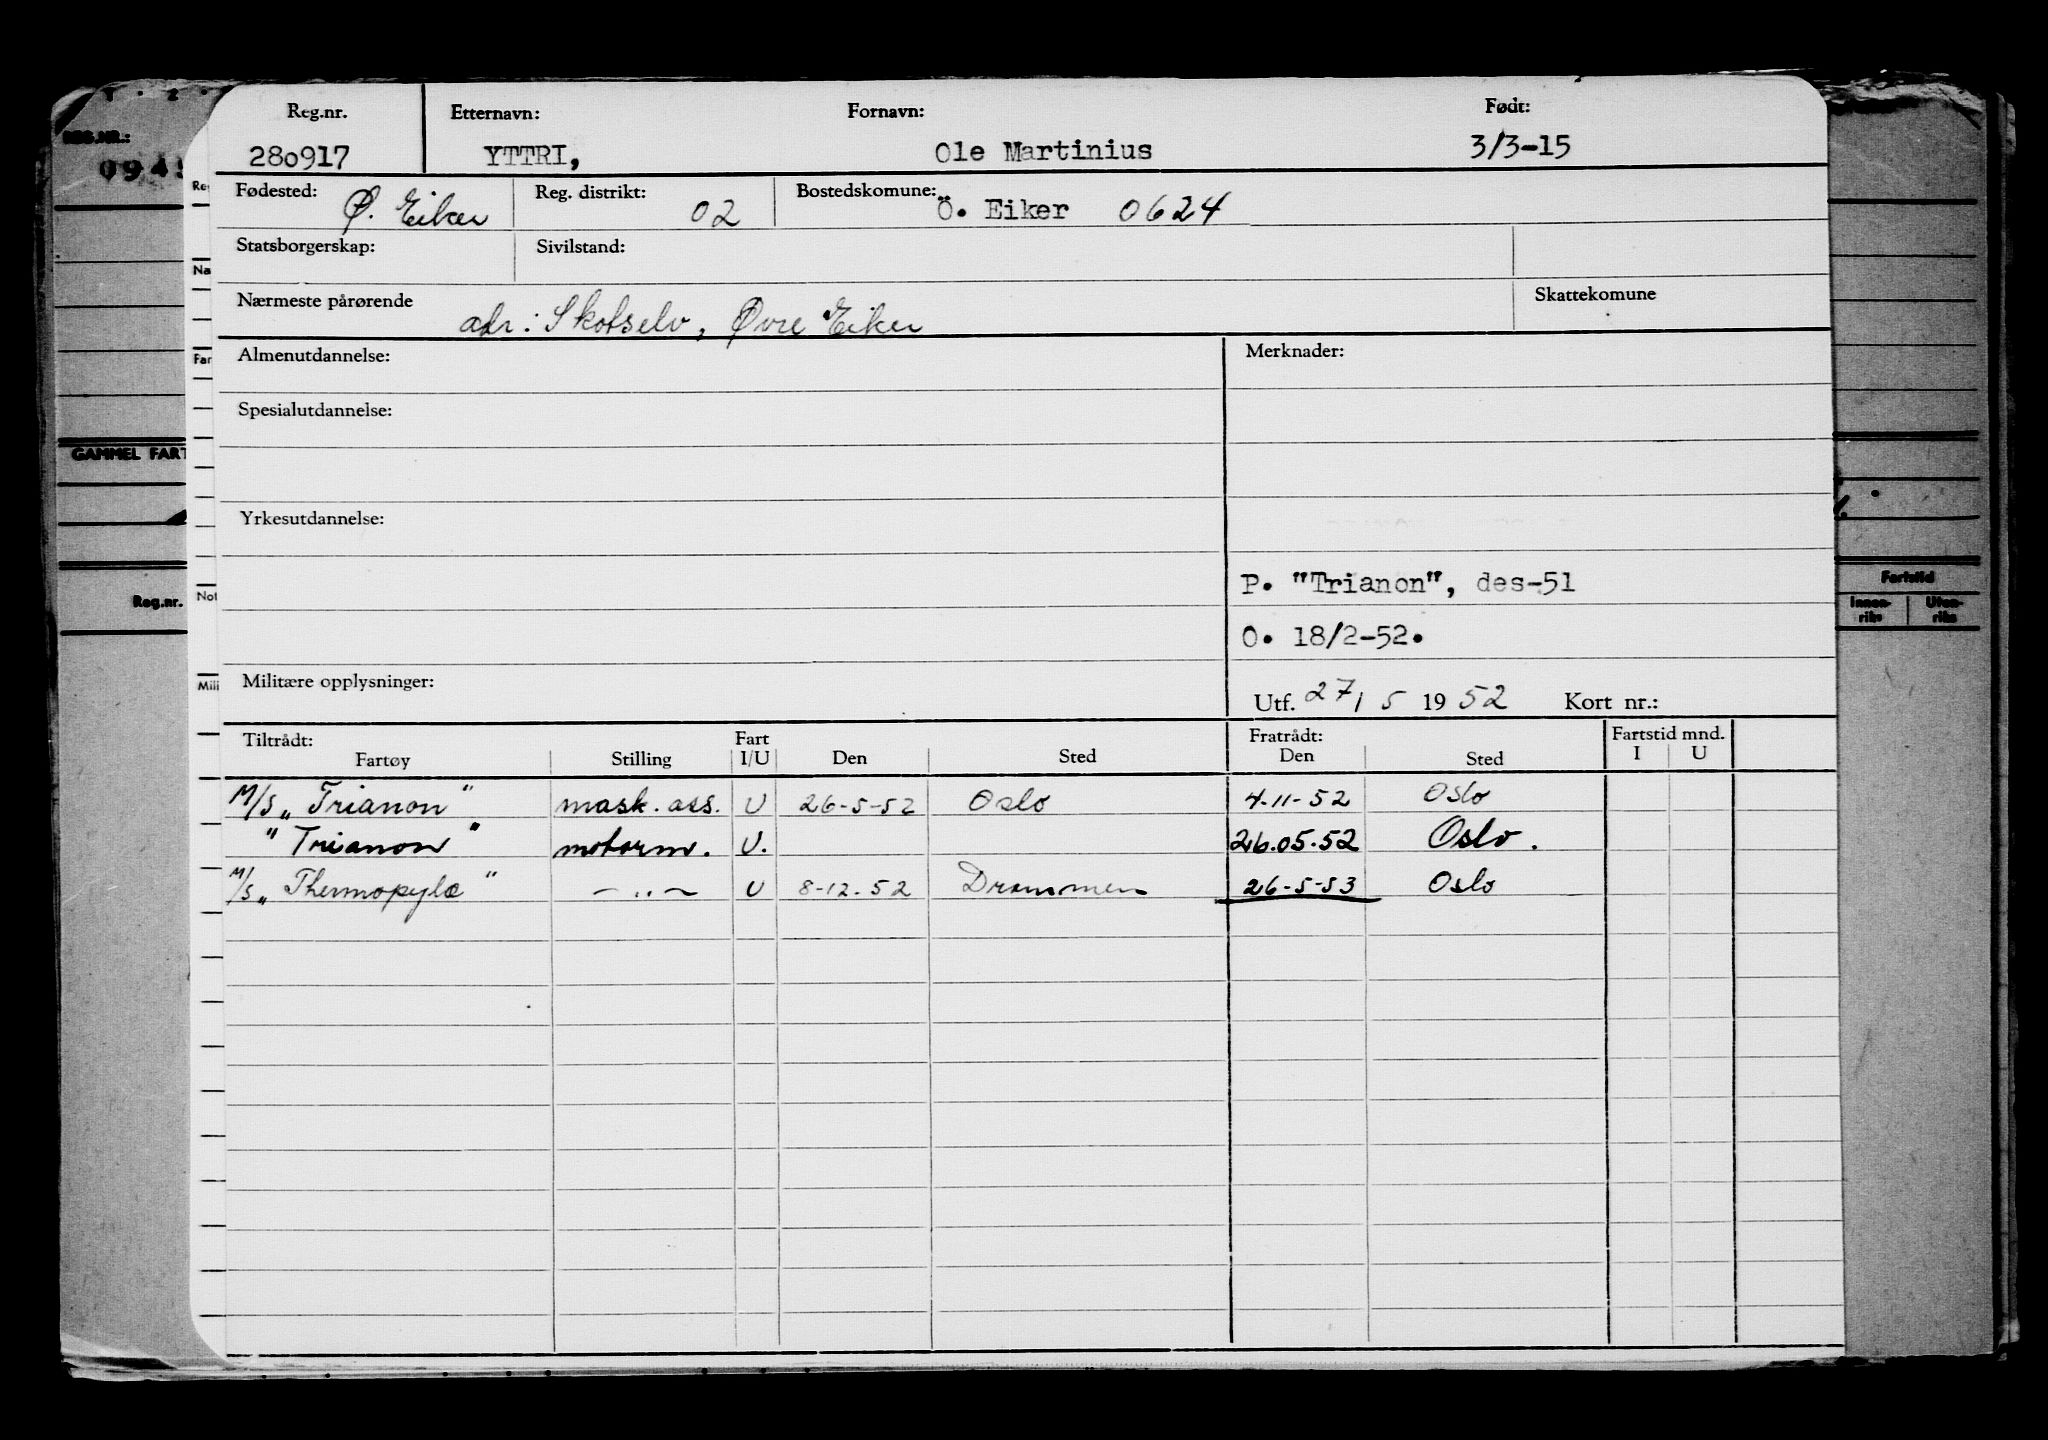 REG.NR.:
GAMMEL FART
Reg.nr.
Fartstid
Innen-riks Uten-riks
Na
Far
Not
Mili
Reg.nr. Etternavn: Fornavn: Født:
280917 YTTRI, Ole Martinius 3/3-15
Fødested: Ø. Eiker Reg. distrikt: 02 Bostedskomune: Ö. Eiker 0624
Statsborgerskap: Sivilstand:
Nærmeste pårørende adr: Skotselv, Øvre Eiker Skattekomune
Almenutdannelse: Merknader:
Spesialutdannelse:
Yrkesutdannelse:
P. "Trianon", des-51
O. 18/2-52.
Militære opplysninger: Utf. 27/5 1952 Kort nr.:
Tiltrådt: Fart Fratrådt: Fartstid mnd.
Fartøy Stilling I/U Den Sted Den Sted I U
M/S „Trianon" mask. ass. U 26-5-52 Oslo 4-11-52 Oslo
" Trianon " motorm. U. 26.05.52 Oslo.
M/S „Thermopylæ" —„— U 8-12-52 Drammen 26-5-53 Oslo